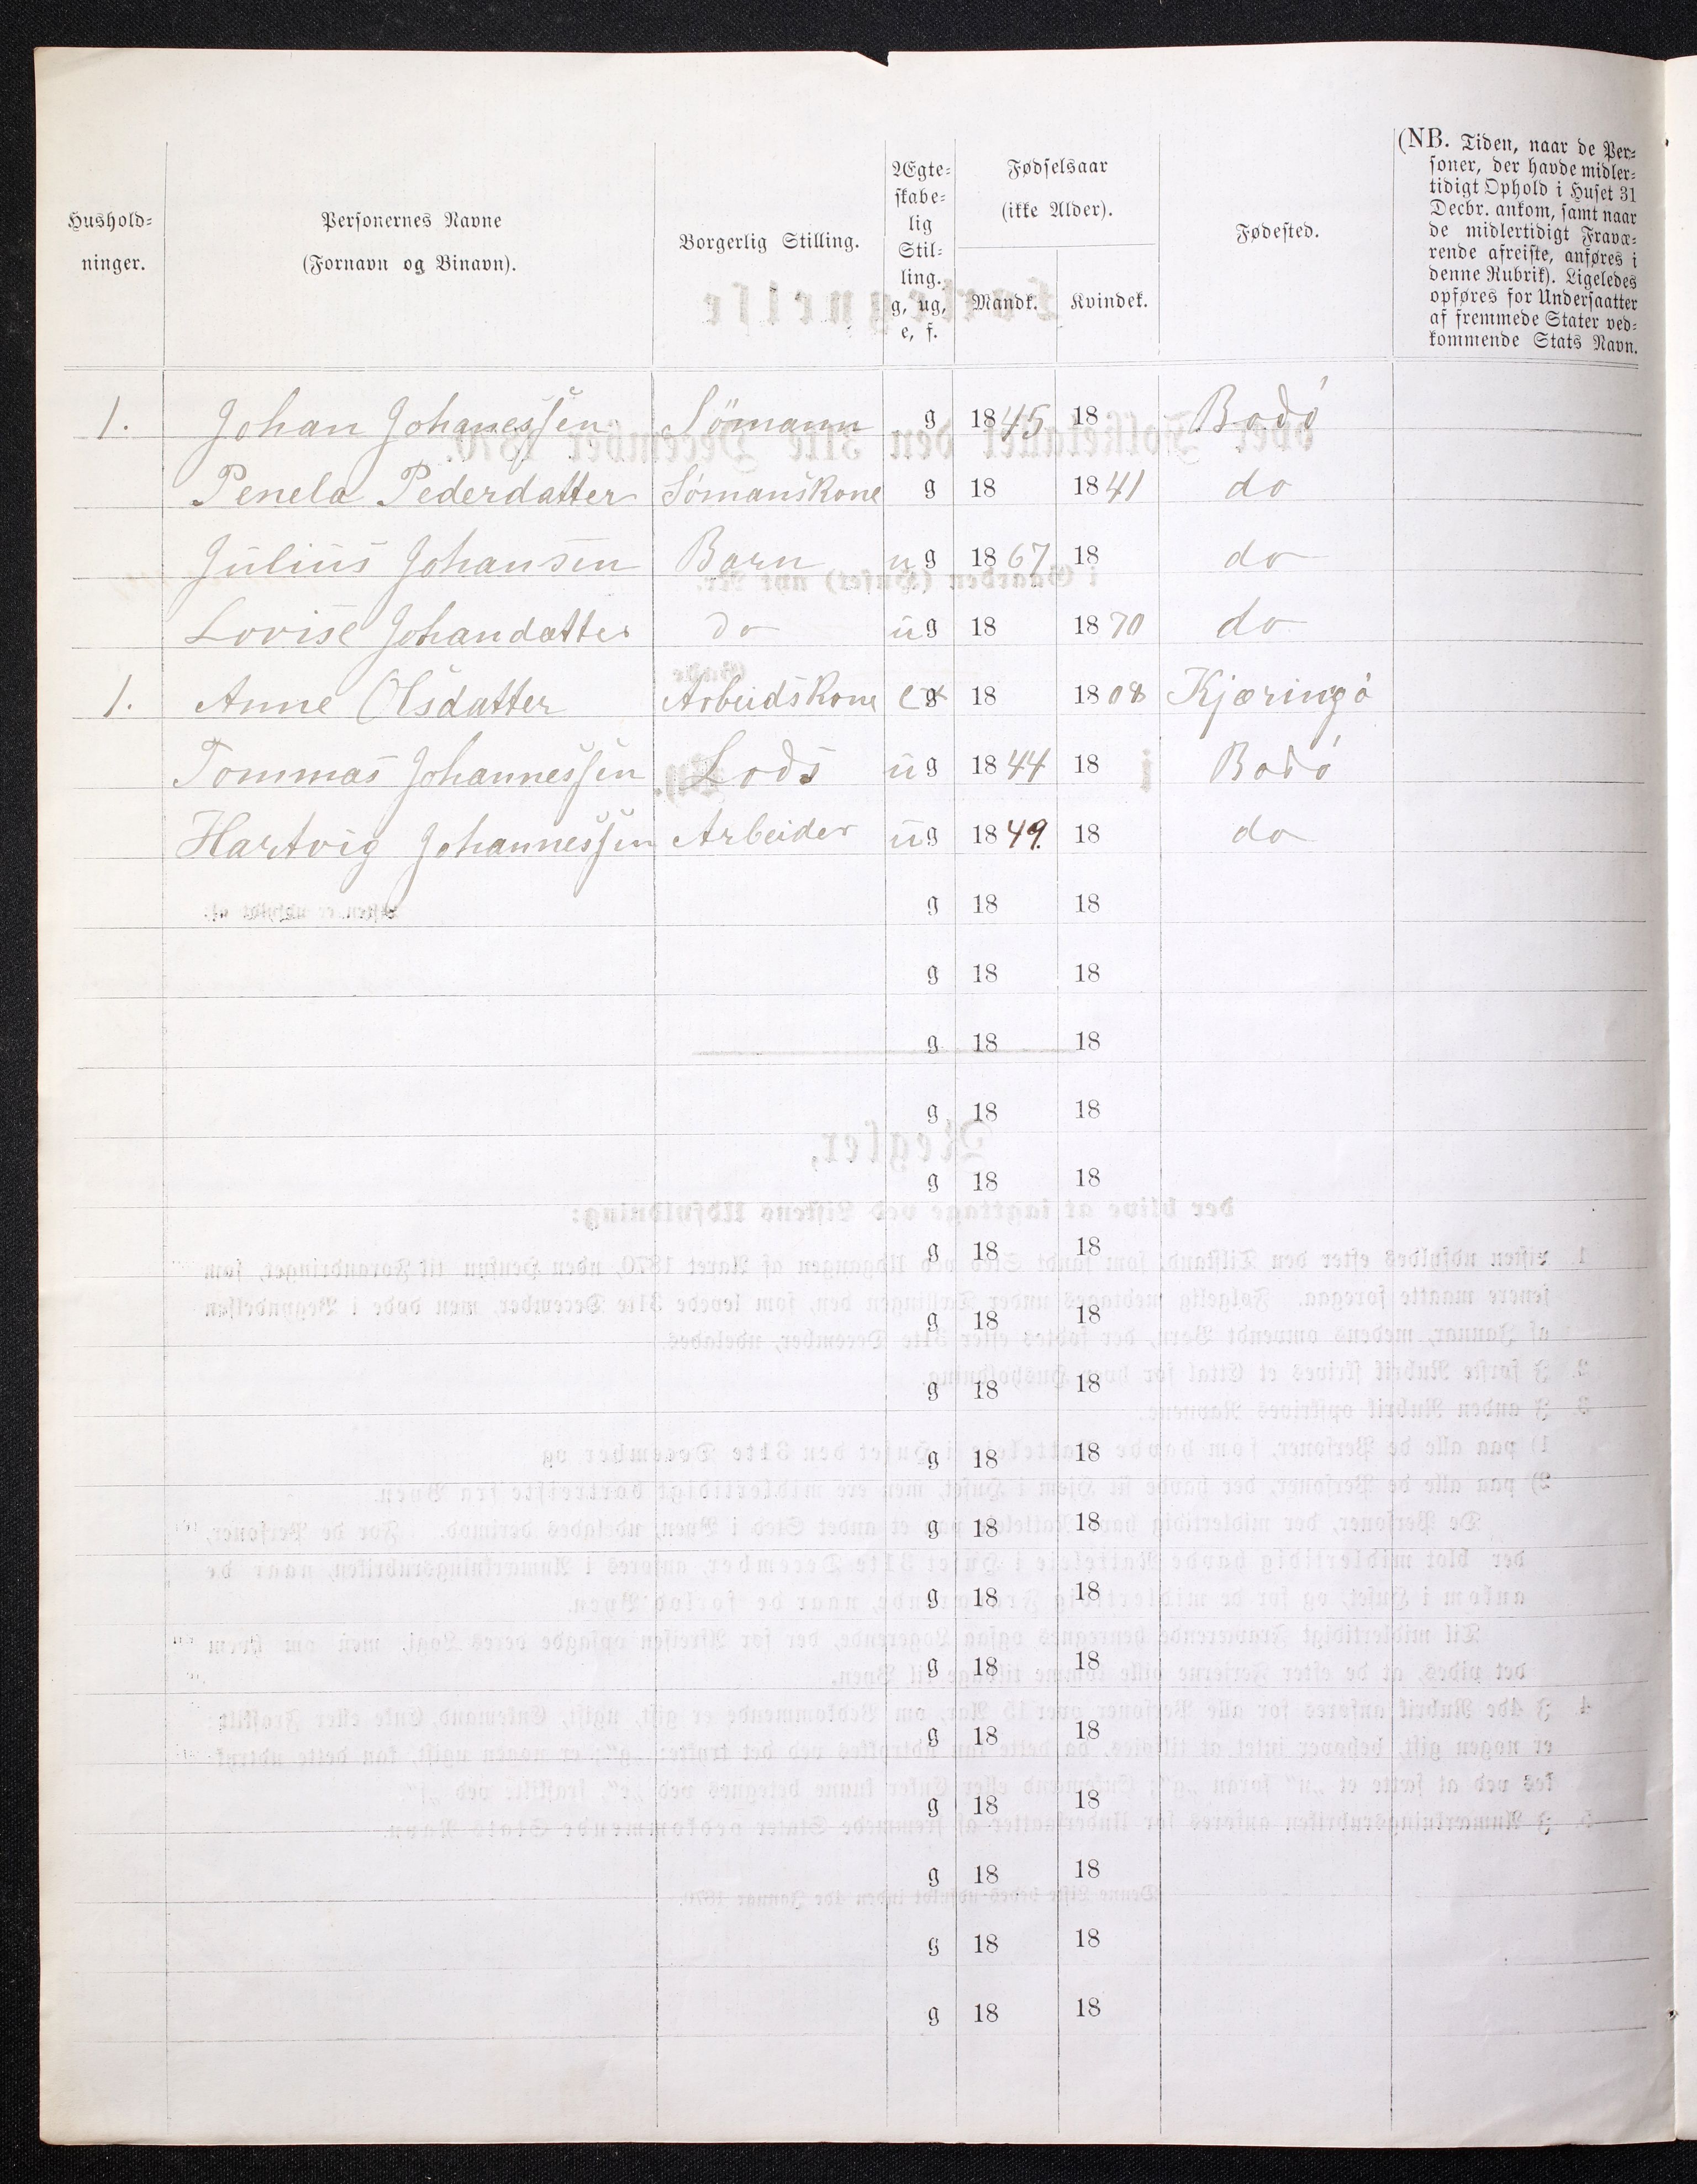 Hushold-
ninger.
Personernes Navne
(Fornavn og Binavn).
Borgerlig Stilling.
Ægte-
skabe-
lig
Stil-
ling.
g, ug,
e, f.
Fødselsaar
(ikke Alder).
Mandk.
Kvindek.
Fødested.
(NB. Tiden, naar de Per-
soner, der havde midler-
tidigt Ophold i Huset 31
Decbr. ankom, samt naar
de midlertidigt Fravæ-
rende afreiste, anføres i
denne Rubrik). Ligeledes
opføres for Undersaatter
af fremmede Stater ved-
kommende Stats Navn.
1. Johan Johanessen Sömann g 1845 18 Bodó
Penela Pederdatter Sómanskone g 18 1841 do
Julius Johansen Barn ug 1867 18 do
Lovise Johandatter do ug 18 1870 do
1. Anne Olsdatter Arbeidskone e g 18 1808 Kjæringó
Tommas Johannessen Lods ug 1844 18 Bodó
Hartvig Johannessen Arbeider ug 1849. 18 do
g 18 18
g 18 18
g 18 18
g 18 18
g 18 18
g 18 18
g 18 18
g 18 18
g 18 18
g 18 18
g 18 18
g 18 18
g 18 18
g 18 18
g 18 18
g 18 18
g 18 18